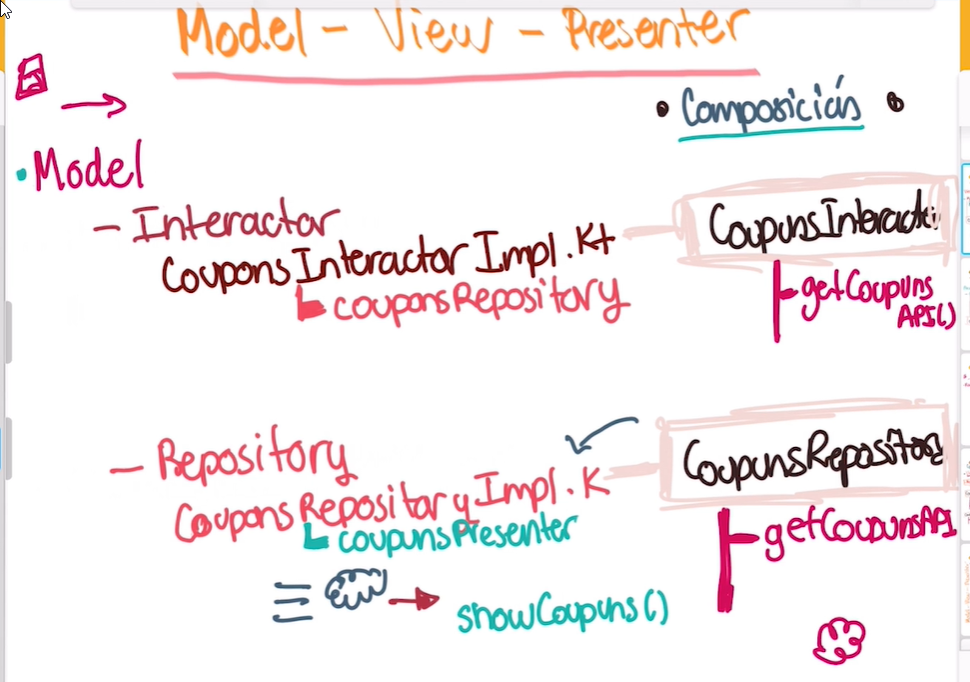 Model - View - Presenter
• Composición •
• Model
- Interactor
CouponsInteractorImpl.Kt
couponsRepository
CoupunsInteracto
getCoupuns
API()
- Repository
CouponsRepositaryImpl.K
coupunsPresenter
showCoupuns()
CoupunsRepository
getCoupunsAPI